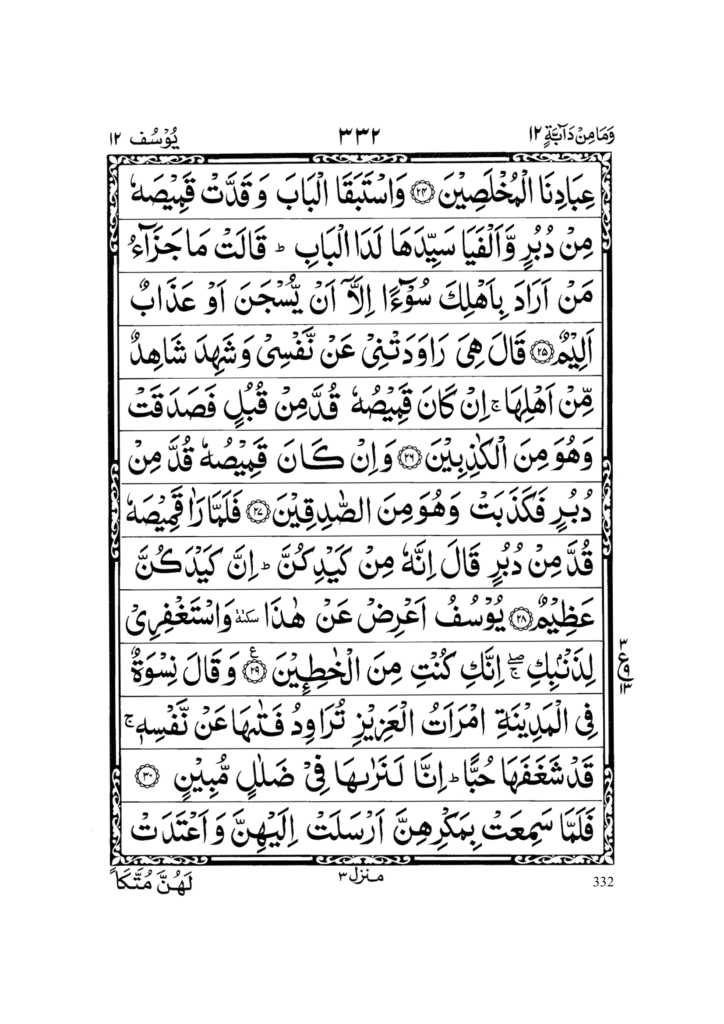 وَمَا مِنْ دَآبَّةٍ ١٢ ٣٣٢ يُوْسُف ١٢
عِبَادِنَا الْمُخْلَصِيْنَ ﴿٢٤﴾ وَاسْتَبَقَا الْبَابَ وَ قَدَّتْ قَمِيْصَهٗ
مِنْ دُبُرٍ وَّاَلْفَيَا سَيِّدَهَا لَدَا الْبَابِ ؕ قَالَتْ مَا جَزَآءُ
مَنْ اَرَادَ بِاَهْلِكَ سُوْٓءًا اِلَّاۤ اَنْ يُّسْجَنَ اَوْ عَذَابٌ
اَلِيْمٌ ﴿٢٥﴾ قَالَ هِىَ رَاوَدَتْنِىْ عَنْ نَّفْسِىْ وَ شَهِدَ شَاهِدٌ
مِّنْ اَهْلِهَا ۚ اِنْ كَانَ قَمِيْصُهٗ قُدَّ مِنْ قُبُلٍ فَصَدَقَتْ
وَهُوَ مِنَ الْكٰذِبِيْنَ ﴿٢٦﴾ وَاِنْ كَانَ قَمِيْصُهٗ قُدَّ مِنْ
دُبُرٍ فَكَذَبَتْ وَهُوَ مِنَ الصّٰدِقِيْنَ ﴿٢٧﴾ فَلَمَّا رَاٰ قَمِيْصَهٗ
قُدَّ مِنْ دُبُرٍ قَالَ اِنَّهٗ مِنْ كَيْدِكُنَّ ؕ اِنَّ كَيْدَكُنَّ
عَظِيْمٌ ﴿٢٨﴾ يُوْسُفُ اَعْرِضْ عَنْ هٰذَا سكتة وَاسْتَغْفِرِىْ
لِذَنْۢبِكِ ۖۚ اِنَّكِ كُنْتِ مِنَ الْخٰطِـِٕيْنَ ﴿٢٩﴾ ع وَ قَالَ نِسْوَةٌ
فِى الْمَدِيْنَةِ امْرَاَتُ الْعَزِيْزِ تُرَاوِدُ فَتٰٮهَا عَنْ نَّفْسِهٖ ۚ
قَدْ شَغَفَهَا حُبًّا ؕ اِنَّا لَـنَرٰٮهَا فِىْ ضَلٰلٍ مُّبِيْنٍ ﴿٣٠﴾
فَلَمَّا سَمِعَتْ بِمَكْرِهِنَّ اَرْسَلَتْ اِلَيْهِنَّ وَ اَعْتَدَتْ
٣
ع ٩
١٣
لَهُنَّ مُتَّكَاً منزل ٣ 332